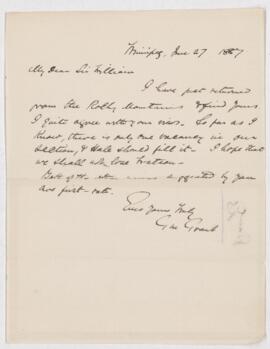 Winnipeg, June 27 1887
My Dear Sir William
I have just returned
from the Rocky Mountains & find yours
I quite agree with your views. So far as I
know, there is only one vacancy in our
Section, & Hale should fill it. I hope that
we shall not lose Watson.
suggested by you
are first-rate.
Ever Yours truly
Geo Grant